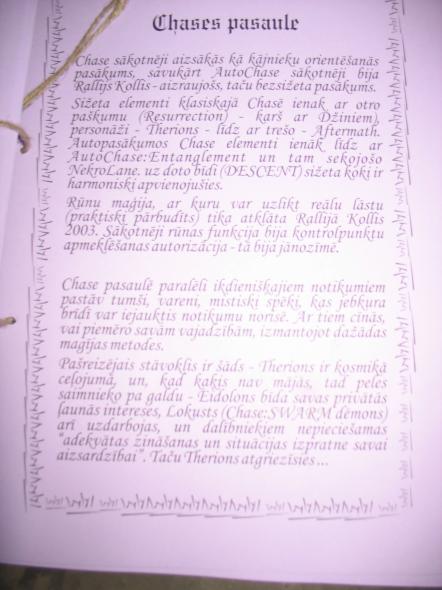 Chases pasaule
Chase sākotnēji aizsākās kā kājnieku orientēšanās
pasākums, savukārt AutoChase sākotnēji bija
Rallijs Kollis - aizraujošs, taču bezsižeta pasākums.
Sižeta elementi klasiskajā Chasē ienāk ar otro
paškumu (Resurrection) - karš ar Džiniem),
personāži - Therions - līdz ar trešo - Aftermath.
Autopasākumos Chase elementi ienāk līdz ar
AutoChase:Entanglement un tam sekojošo
NekroLane. uz doto bīdi (DESCENT) sižeta koki ir
harmoniski apvienojušies.
Rūnu maģija, ar kuru var uzlikt reālu lāstu
(praktiski pārbudīts) tika atklāta Rallijā Kollis
2003. Sākotnēji rūnas funkcija bija kontrolpunktu
apmeklēšanas autorizācija - tā bija jānozīmē.
Chase pasaulē paralēli ikdienišķajiem notikumiem
pastāv tumši, vareni, mistiski spēki, kas jebkura
brīdī var iejauktis notikumu norisē. Ar tiem cinās,
vai piemēro savām vajadzībām, izmantojot dažādas
maģijas metodes.
Pašreizējais stāvoklis ir šāds - Therions ir kosmikā
ceļojumā, un, kad kaķis nav mājās, tad peles
saimnieko pa galdu - Eidolons bīda savas privātās
ļaunās intereses, Lokusts (Chase:SWARM dēmons)
arī uzdarbojas, un dalībniekiem nepieciešamas
"adekvātas zināšanas un situācijas izpratne savai
aizsardzībai". Taču Therions atgriezīsies ...